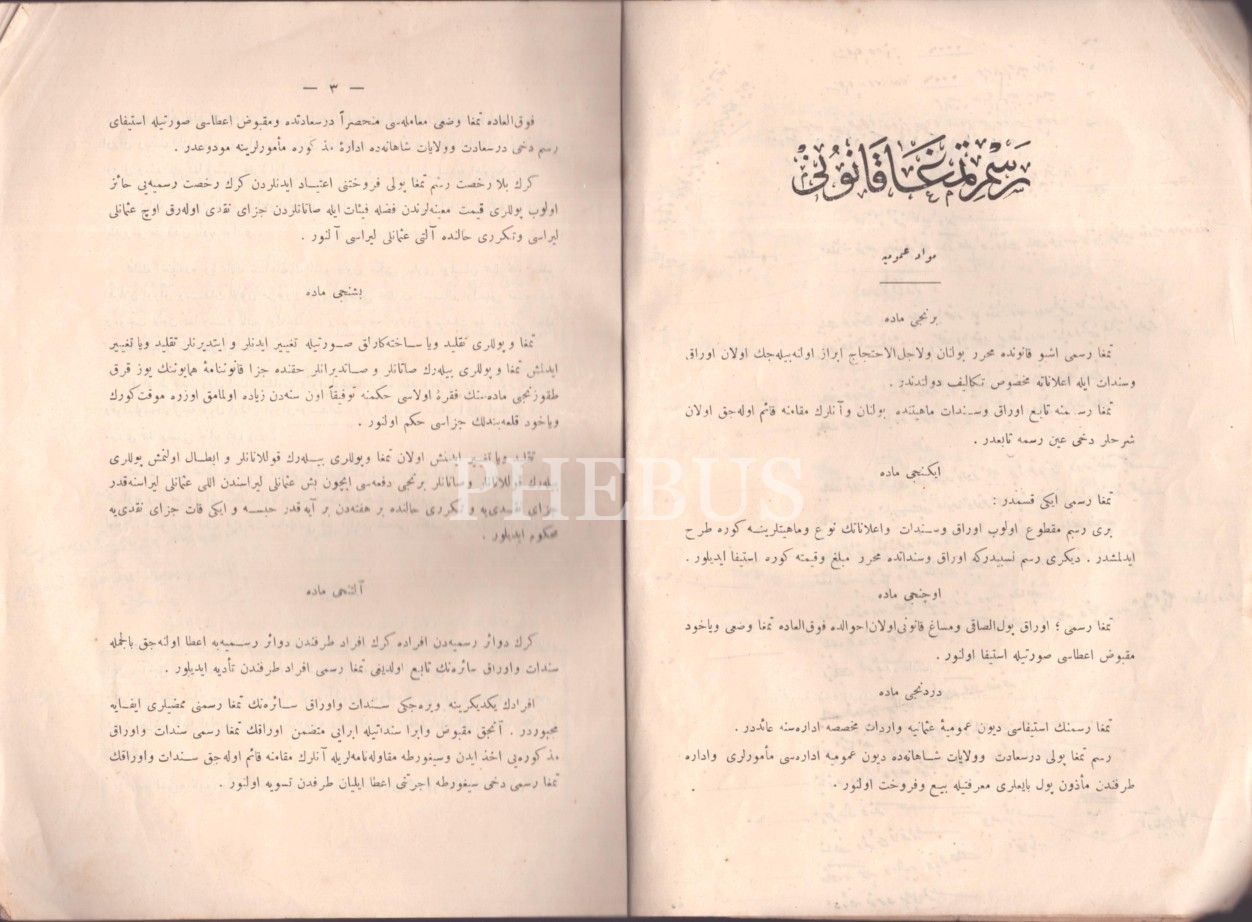 رسم تمغا قانونى
مواد عموميه
برنجى ماده
تمغا رسمى اشبو قانونده محرر بولنان ولاجل الاحتجاج ابراز اولنه‌بيله‌جك اولان اوراق
وسندات ايله اعلاناته مخصوص تكاليف دولتدندر .
تمغا رسمنه تابع اوراق وسندات ماهيتنده بولنان وآنلرك مقامنه قائم اوله‌جق اولان
شرحلر دخى عين رسمه تابعدر .
ايكنجى ماده
تمغا رسمى ايكى قسمدر :
برى رسم مقطوع اولوب اوراق وسندات واعلاناتك نوع وماهيتلرينه كوره طرح
ايدلمشدر . ديكرى رسم نسبيدركه اوراق وسنداتده محرر مبلغ وقيمته كوره استيفا ايديلور .
اوچنجى ماده
تمغا رسمى ؛ اوراق پول‌الصاقى ومساغ قانونى‌اولان احوالده فوق‌العاده تمغا وضعى وياخود
مقبوض اعطاسى صورتيله استيفا اولنور .
دردنجى ماده
تمغا رسمنك استيفاسى ديون عموميهٔ عثمانيه واردات مخصصه اداره‌سنه عائددر .
رسم تمغا پولى درسعادت وولايات شاهانه‌ده ديون عموميه اداره‌سى مأمورلرى واداره
طرفندن مأذون پول بايعلرى معرفتيله بيع وفروخت اولنور .
— ٣ —
فوق‌العاده تمغا وضعى معامله‌سى منحصراً درسعادتده ومقبوض اعطاسى صورتيله استيفاى
رسم دخى درسعادت وولايات شاهانه‌ده ادارهٔ مذكوره مأمورلرينه مودوعدر .
كرك بلا رخصت رسم تمغا پولى فروختنى اعتياد ايدنلردن كرك رخصت رسميه‌يى حائز
اولوب پوللرى قيمت معينه‌لرندن فضله فيئات ايله صاتانلردن جزاى نقدى اوله‌رق اوچ عثمانلى
ليراسى وتكررى حالنده آلتى عثمانلى ليراسى آلنور .
بشنجى ماده
تمغا و پوللرى تقليد ويا ساخته‌كارلق صورتيله تغيير ايدنلر و ايتديرنلر تقليد ويا تغيير
ايدلمش تمغا و پوللرى بيله‌رك صاتانلر و صاتديرانلر حقنده جزا قانوننامهٔ همايوننك يوز قرق
طقوزنجى ماده‌سنك فقرهٔ اولاسى حكمنه توفيقاً اون سنه‌دن زياده اولمامق اوزره موقت كورك
وياخود قلعه‌بندلك جزاسى حكم اولنور .
تقليد ويا تغيير ايدلمش اولان تمغا وپوللرى بيله‌رك قوللانانلر و ابطال اولنمش پوللرى
بيله‌رك قوللانانلر وصاتانلر برنجى دفعه‌سى ايچون بش عثمانلى ليراسندن اللى عثمانلى ليراسنه‌قدر
جزاى نقدى‌يه و تكررى حالنده بر هفته‌دن بر آيه‌قدر حبسه و ايكى قات جزاى نقدى‌يه
محكوم ايديلور .
آلتنجى ماده
كرك دوائر رسميه‌دن افراده كرك افراد طرفندن دوائر رسميه‌يه اعطا اولنه‌جق بالجمله
سندات واوراق سائره‌نك تابع اولديغى تمغا رسمى افراد طرفندن تأديه ايديلور .
افرادك يكديكرينه ويره‌جكى سندات واوراق سائره‌نك تمغا رسمنى ممضيلرى ايفايه
مجبوردر . آنجق مقبوض وابرا سنداتيله ابرايى متضمن اوراقك تمغا رسمى سندات واوراق
مذكوره‌يى اخذ ايدن وسيغورطه مقاوله‌نامه‌لريله آنلرك مقامنه قائم اوله‌جق سندات واوراقك
تمغا رسمى دخى سيغورطه اجرتنى اعطا ايليان طرفدن تسويه اولنور .
PHEBUS